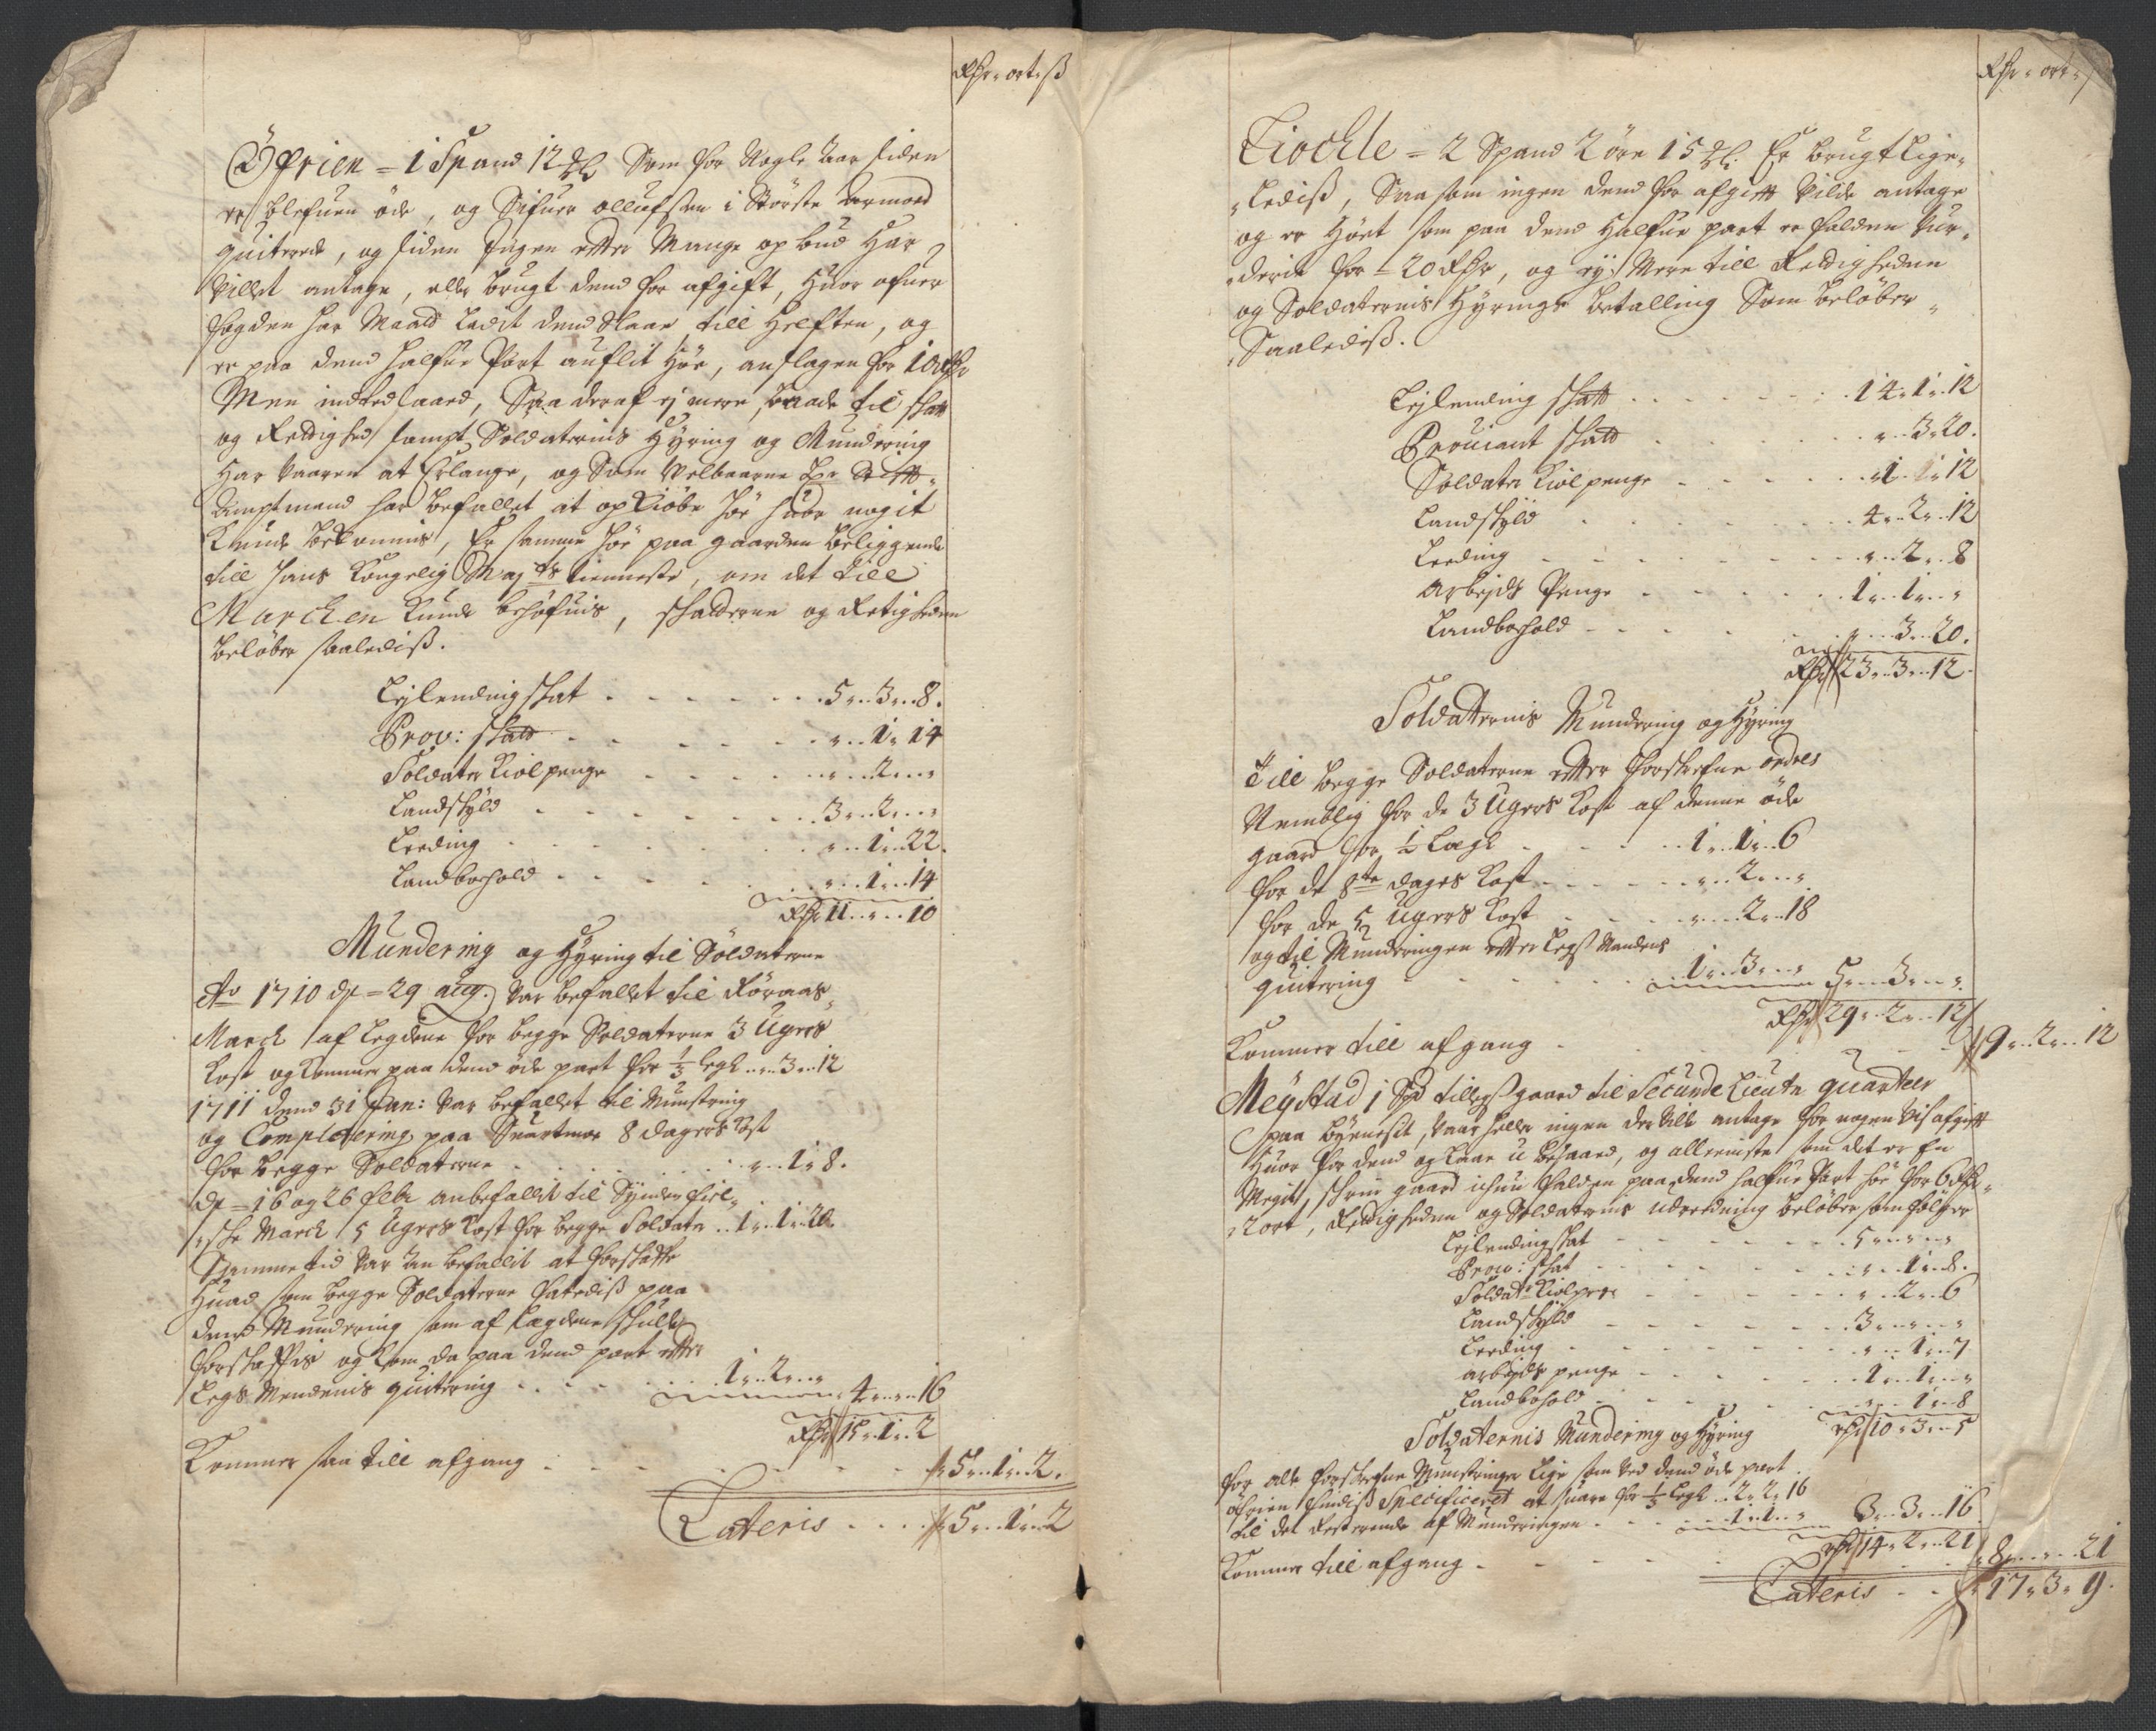 Rdr ort ß
Öfrien = 1 Spand 12 ℔ Som for Nogle Aar siden
er blefuen öde, og Sifuer ollufsen i Störste Armoed
quiterede, og siden Ingen etter Mange opbud Har
Villet antage, eller brugt dend for afgift, Huor ofuer
fogden har Maatt Ladit dend Slaae till Helften, og
er paa dend halfue Part aufflit Höe, anslagen for 10 Rdr
Men indted saaed, Saa deraf ej mere, baade til skatt
og Rettighed sampt Soldaternis Hyring og Mundering
Har Vaaren at Erlange, og Som Velbaarne Hr Stifft
Amptmand har befallet at opkiöbe höe huor nogit
Kunde bekommis, Er samme höe paa gaarden beliggende
till Hans Kongelig Mayts tienneste, om det till
Marchen Kunde behöfuis, schatterne og Retigheden
belöber saalediß.
Lejlendingskat . . . 5 . . 3 . . 8.
Prov: skatt . . . " . . 1 . 14
Soldater Kiolpenge . . . " . . 2 . . "
Landskyld . . . 3 . . 2 . . "
Leeding . . . " . . 1 . . 22.
Landborhold . . . " . . 1 . . 14
Rdr 11 . . " . . 10
Mundering og Hyring til Soldaterne
Ao 1710 dn = 29 aug. Var befallet til Röraas
March af Legdene for begge Soldaterne 3 Ugers
Kost og kommer paa dend öde part for 1/3 legd . . " . 3 . . 12
1711 dend 31 Jan: Var befallet til Munstring
og Completering paa Svartmoe 8 dagers Kost
for begge Soldaterne . . . " . . 1 . 8.
dn = 16 og 26 febr anbefallet til Synden fiel-
ske March 5 Ugers Kost for begge Soldater . . 1 . . 1 . 20
Samme tid Var An befallet at forskaffe
Huad som begge Soldaterne fatediß paa
deris Mundering som af Legdene skulde
forskaffis og kom da paa dend part etter
Legs Mendenis quitering . . . 1 . . 2 . . " 4 . . " . . 16
Rdr 15 . . 1 . . 2
Kommer saa till afgang . . . 5 . . 1 . . 2.
Lateris . . . 5 . . 1 . . 2
Rdr ort ß
Kiochle = 2 Spand 2 öre 15 ℔. Er brugt Lige-
Lediß, Saa som ingen dend for afgifft Vilde antage
og er Höet som paa dend Halfue part er falden Vur-
derit for = 20 Rdr, og ey Mere till Rettigheden
og Soldaternis Hyrings betalling Som belöber
Saalediß.
Lejlending skatt . . . 14 . . 1 . . 12
Proviant skatt . . . " . . 3 . 20.
Soldater Kiolpenge . . . " 1 . . 1 . 12
Landskyld . . . 4 . . 2 . . 12
Leeding . . . " . . 2 . . 8
Arbejds Penge . . . 1 . . 1 . . "
Landborhold . . . " . . 3 . . 20.
Rdr 23 . . 3 . . 12.
Soldatternis Mundering og Hyring
Till begge Soldaterne etter forskrefne ordres
Nemblig for de 3 Ugers Kost af denne öde
gaard for 1/2 Legd . . . 1 . . 1 . . 6
for de 8te dages Kost . . . " . . 2 . . "
for de 5 Ugers Kost . . . " . . 2 . . 18
og til Munderingen etter Legs Mandens
quitering . . . 1 . . 3 . . " 5 . . 3 . . ".
Rdr 29 . . 2 . . 12
Kommer till afgang . . . 9 . . 2 . . 12
Meystad 1 Spd tillegßgaard til Secunde Lieutn quarteer
paa Byenesit, Vaar heller ingen der Vilde antage for nogen Vis afgifft
Huor for dend og Laae u besaaed, og allermeste som det er En
Megit schrin gaard ichun falden paa dend halfue Part höe for 6 Rdr
2 ort, Rettigheden og Soldaternis Udreedning belöber som fölger
Lejlendingskat . . . 5 . . " . . "
Prov: skat . . . " . . 1 . . 8.
Soldat Kiolpen: . . . " . . 2 . . 6
Landskyld . . . 3 . . " . . "
Leeding . . . " . . 1 . . 7
arbejds penge . . . 1 . . 1 . . "
Landbohold . . . " . . 1 . . 8
Soldaternis Mundering og Hyring Rdr 10 . . 3 . . 5
for alle forskrefne Munstringer Lige som Ved dend öde part
öfrien findiß Specificeret at suare for 1/3 Legd . . 2 . . 2 . 16
til det Resterende af Munderingen . . . 1 . . 1 . . " 3 . . 3 . . 16
Rdr 14 . . 2 . . 21
Kommer till afgang . . . 8 . . " . . 21
Lateris . . 17 . . 3 . . 9.